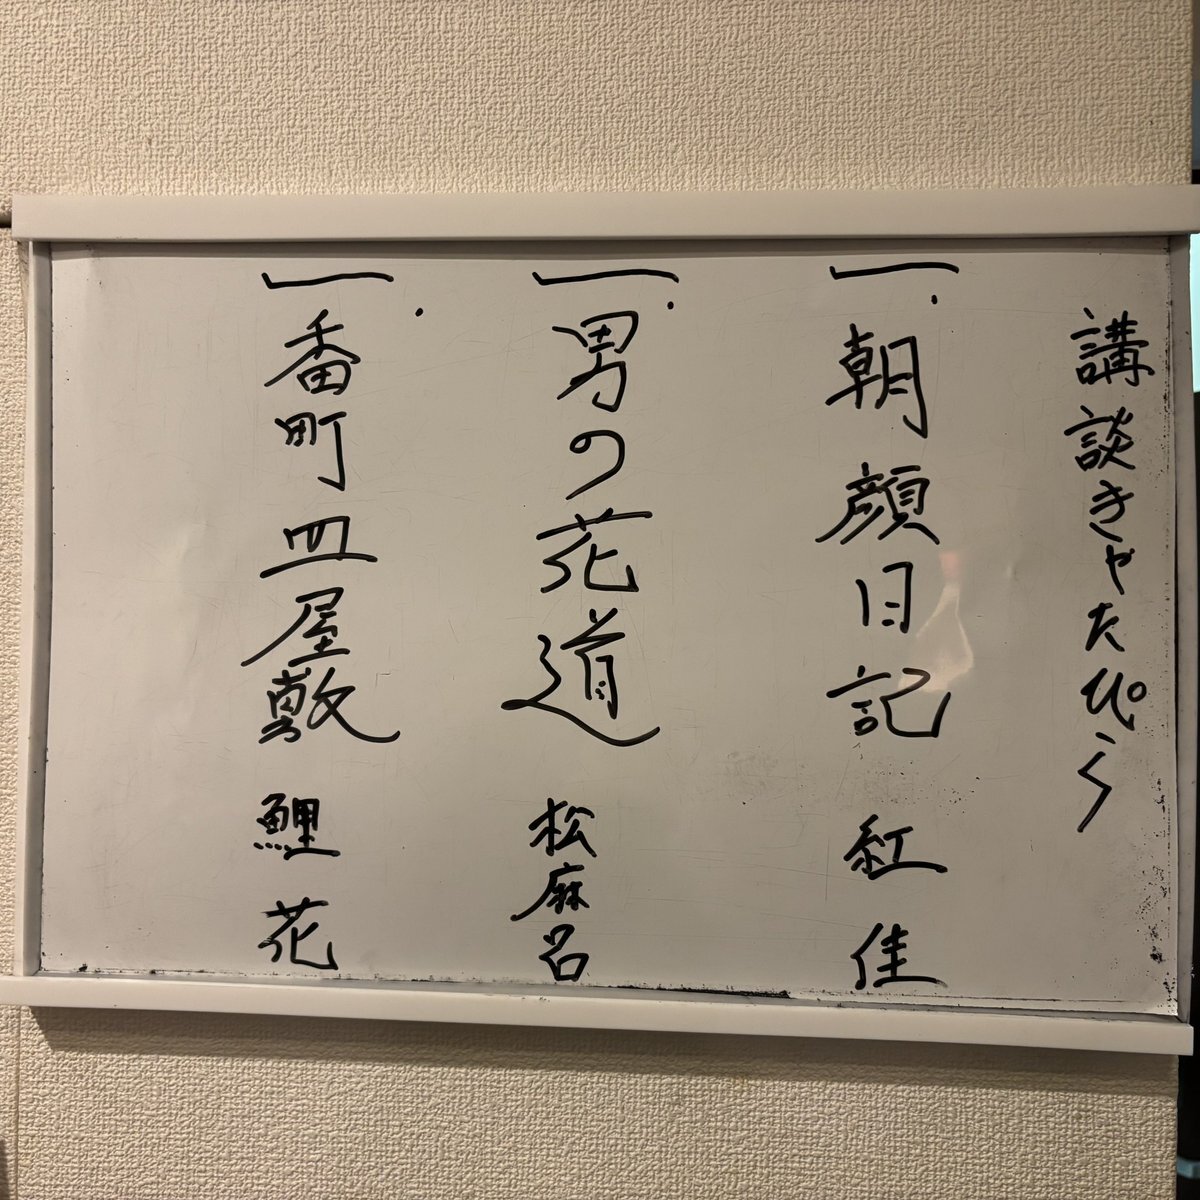 講談きゃたぴら
一.朝顔日記 紅佳
一.男の花道 松麻呂
一.番町皿屋敷 鯉花